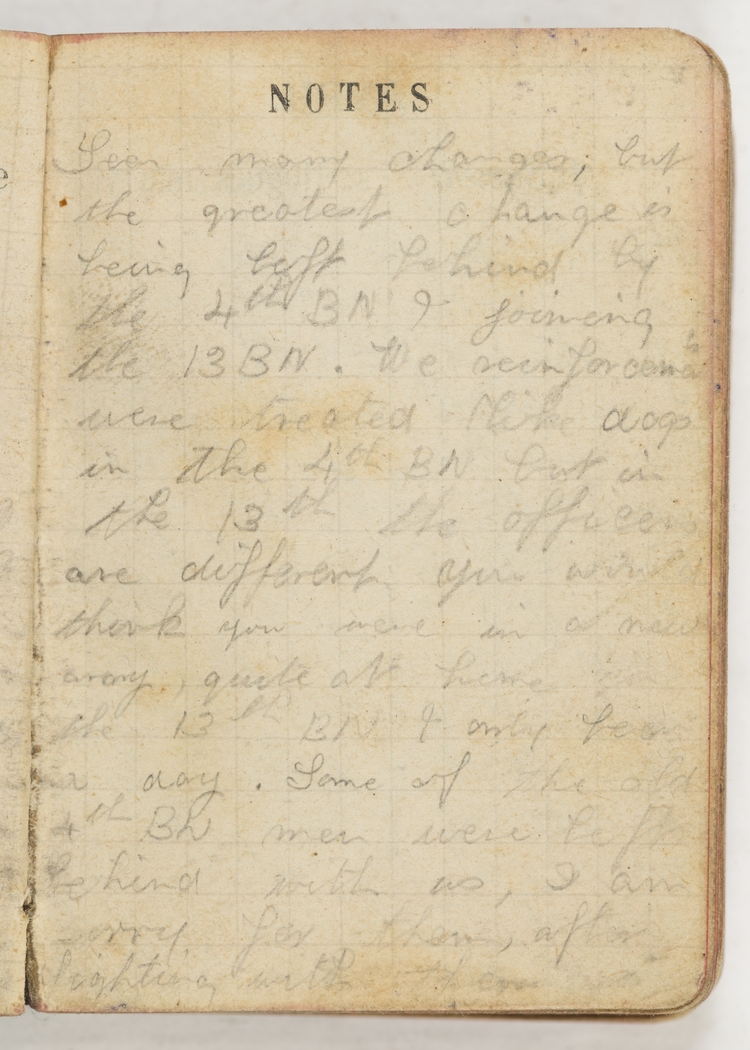 NOTES
Seen many changes, but
the greatest change is
being left behind by
the 4th BN & joining
the 13 BN. We reinforcements
were treated like dogs
in the 4th BN but in
the 13th the officers
are different you would
think you were in a new
army, quite at home in
the 13th BN & only been
a day. Some of the old
4th BN men were left
behind with us, I am
sorry for them, after
fighting with them